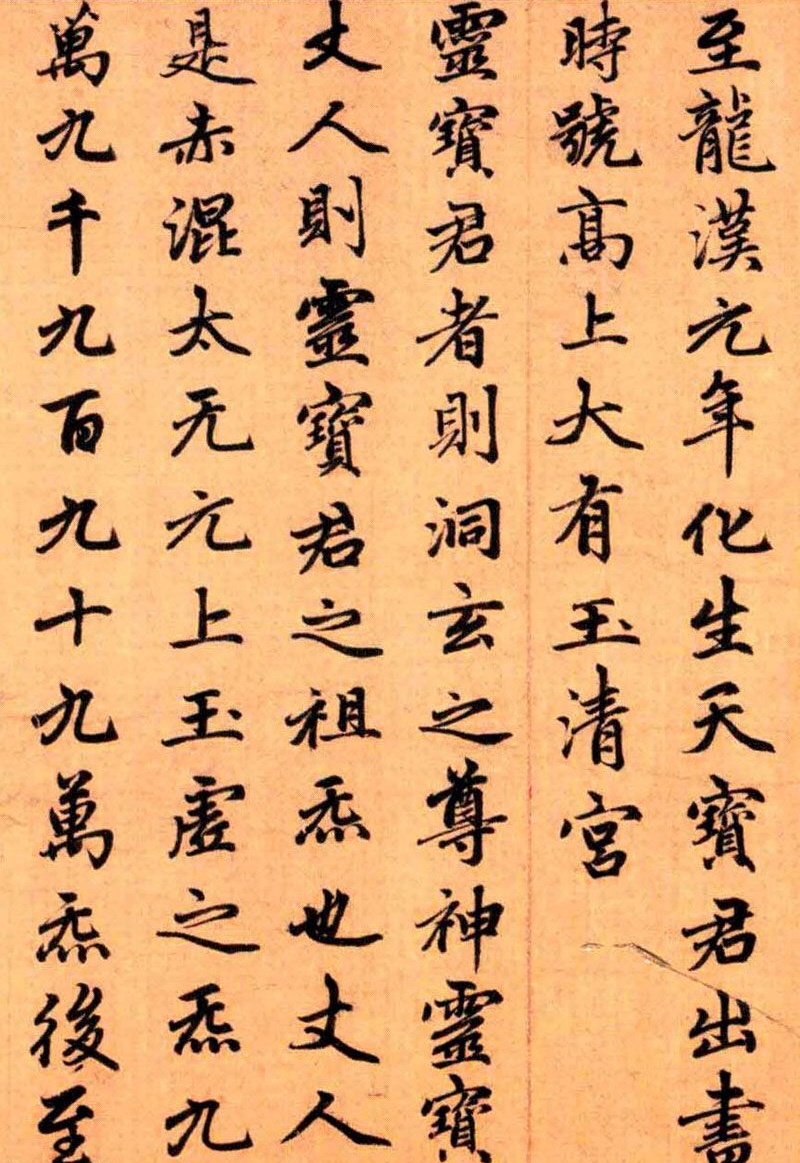 至龍漢元年化生天寶君出書
時號髙上大有玉清宮
靈寶君者則洞玄之尊神靈寶
丈人則靈寶君之祖炁也丈人
是赤混太无元上玉虛之炁九
萬九千九百九十九萬炁後至